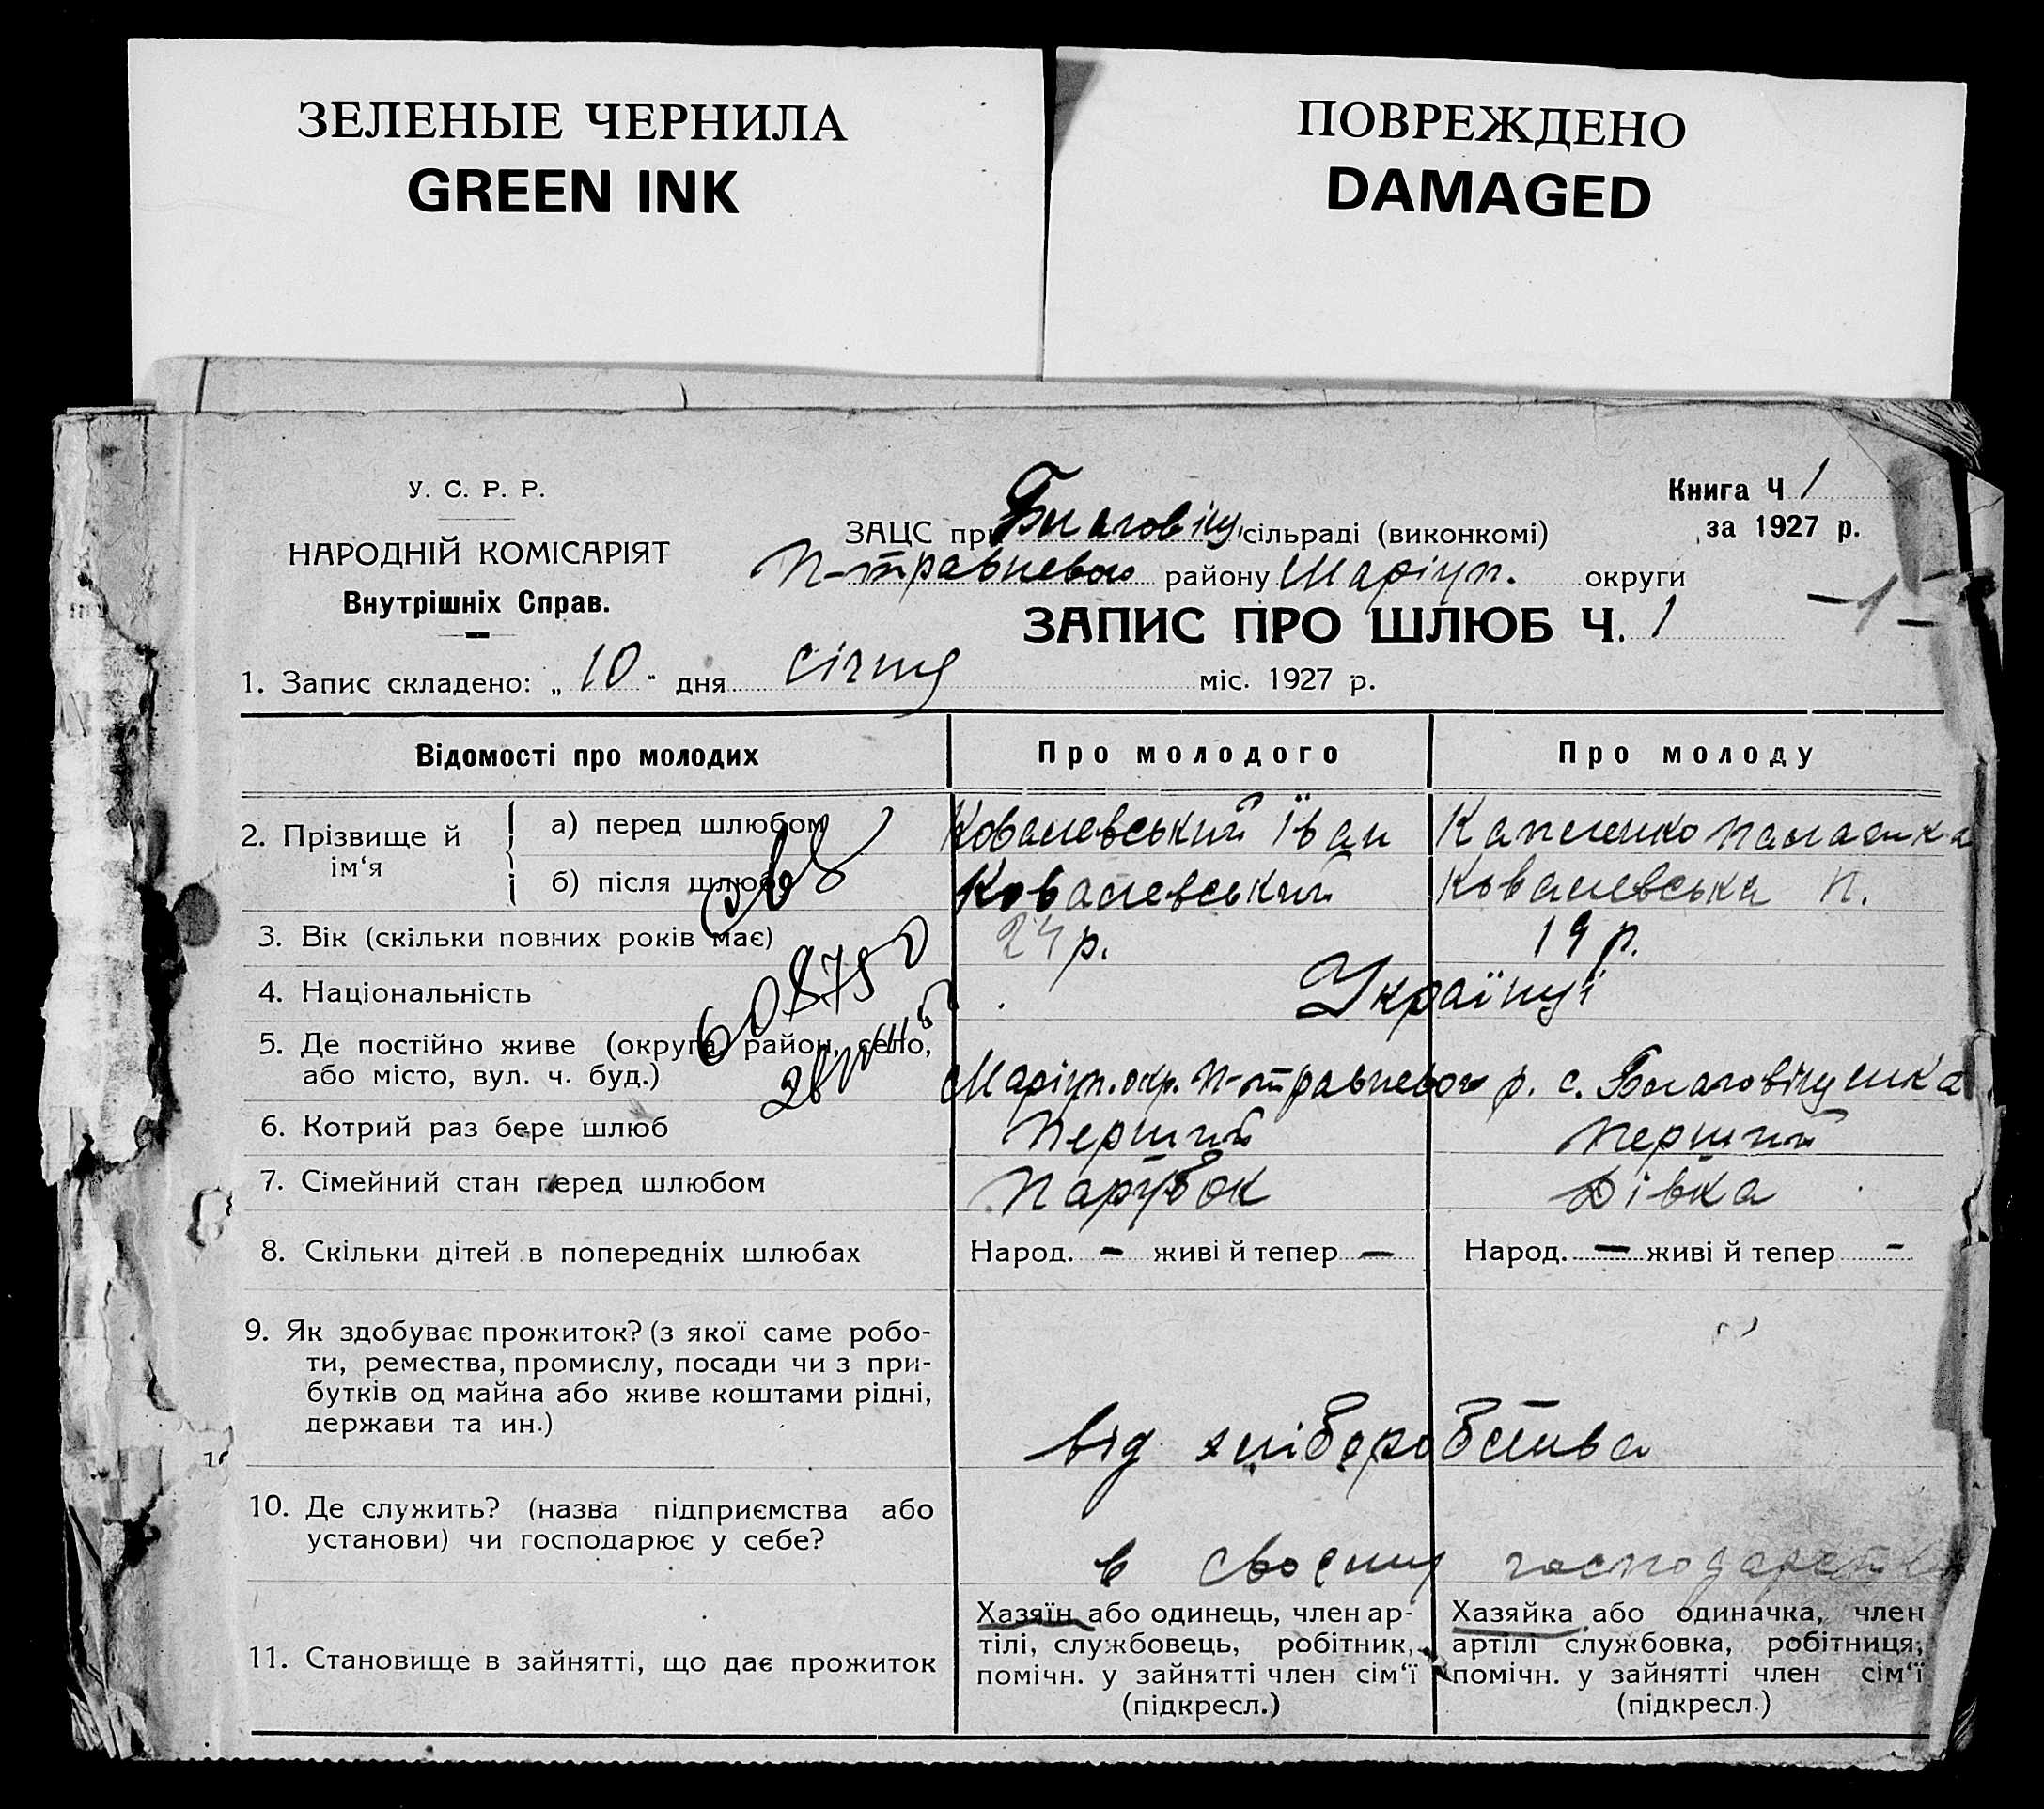 ЗЕЛЕНЫЕ ЧЕРНИЛА
GREEN INK
ПОВРЕЖДЕНО
DAMAGED
У. С. Р. Р.
НАРОДНІЙ КОМІСАРІЯТ
Внутрішніх Справ.
Книга Ч 1
за 1927 р.
ЗАЦС при Благовіщ. сільраді (виконкомі)
П-травневого району Маріуп. округи
ЗАПИС ПРО ШЛЮБ Ч. 1
– 1 –
1. Запис складено: „ 10 " дня січня міс. 1927 р.
Відомості про молодих Про молодого Про молоду
2. Прізвище й ім‘я
а) перед шлюбом Ковалевський Іван
б) після шлюбу Ковалевський Ковалевська П.
3. Вік (скільки повних років має) 24 р. 19 р.
4. Національність Українці
5. Де постійно живе (округа, район, село,
або місто, вул. ч. буд.) Маріуп. окр. П-травневого р. с. Благовіщенка
6. Котрий раз бере шлюб Перший Перший
7. Сімейний стан перед шлюбом Парубок Дівка
8. Скільки дітей в попередніх шлюбах Народ. – живі й тепер – Народ. – живі й тепер –
9. Як здобуває прожиток? (з якої саме робо-
ти, ремества, промислу, посади чи з при-
бутків од майна або живе коштами рідні,
держави та ин.)
від хліборобства
10. Де служить? (назва підприємства або
установи) чи господарює у себе?
в своєму господарстві
11. Становище в зайнятті, що дає прожиток
Хазяїн або одинець, член ар-
тілі, службовець, робітник,
помічн. у зайнятті член сім‘ї
(підкресл.)
Хазяйка або одиначка, член
артілі службовка, робітниця,
помічн. у зайнятті член сім‘ї
(підкресл.)